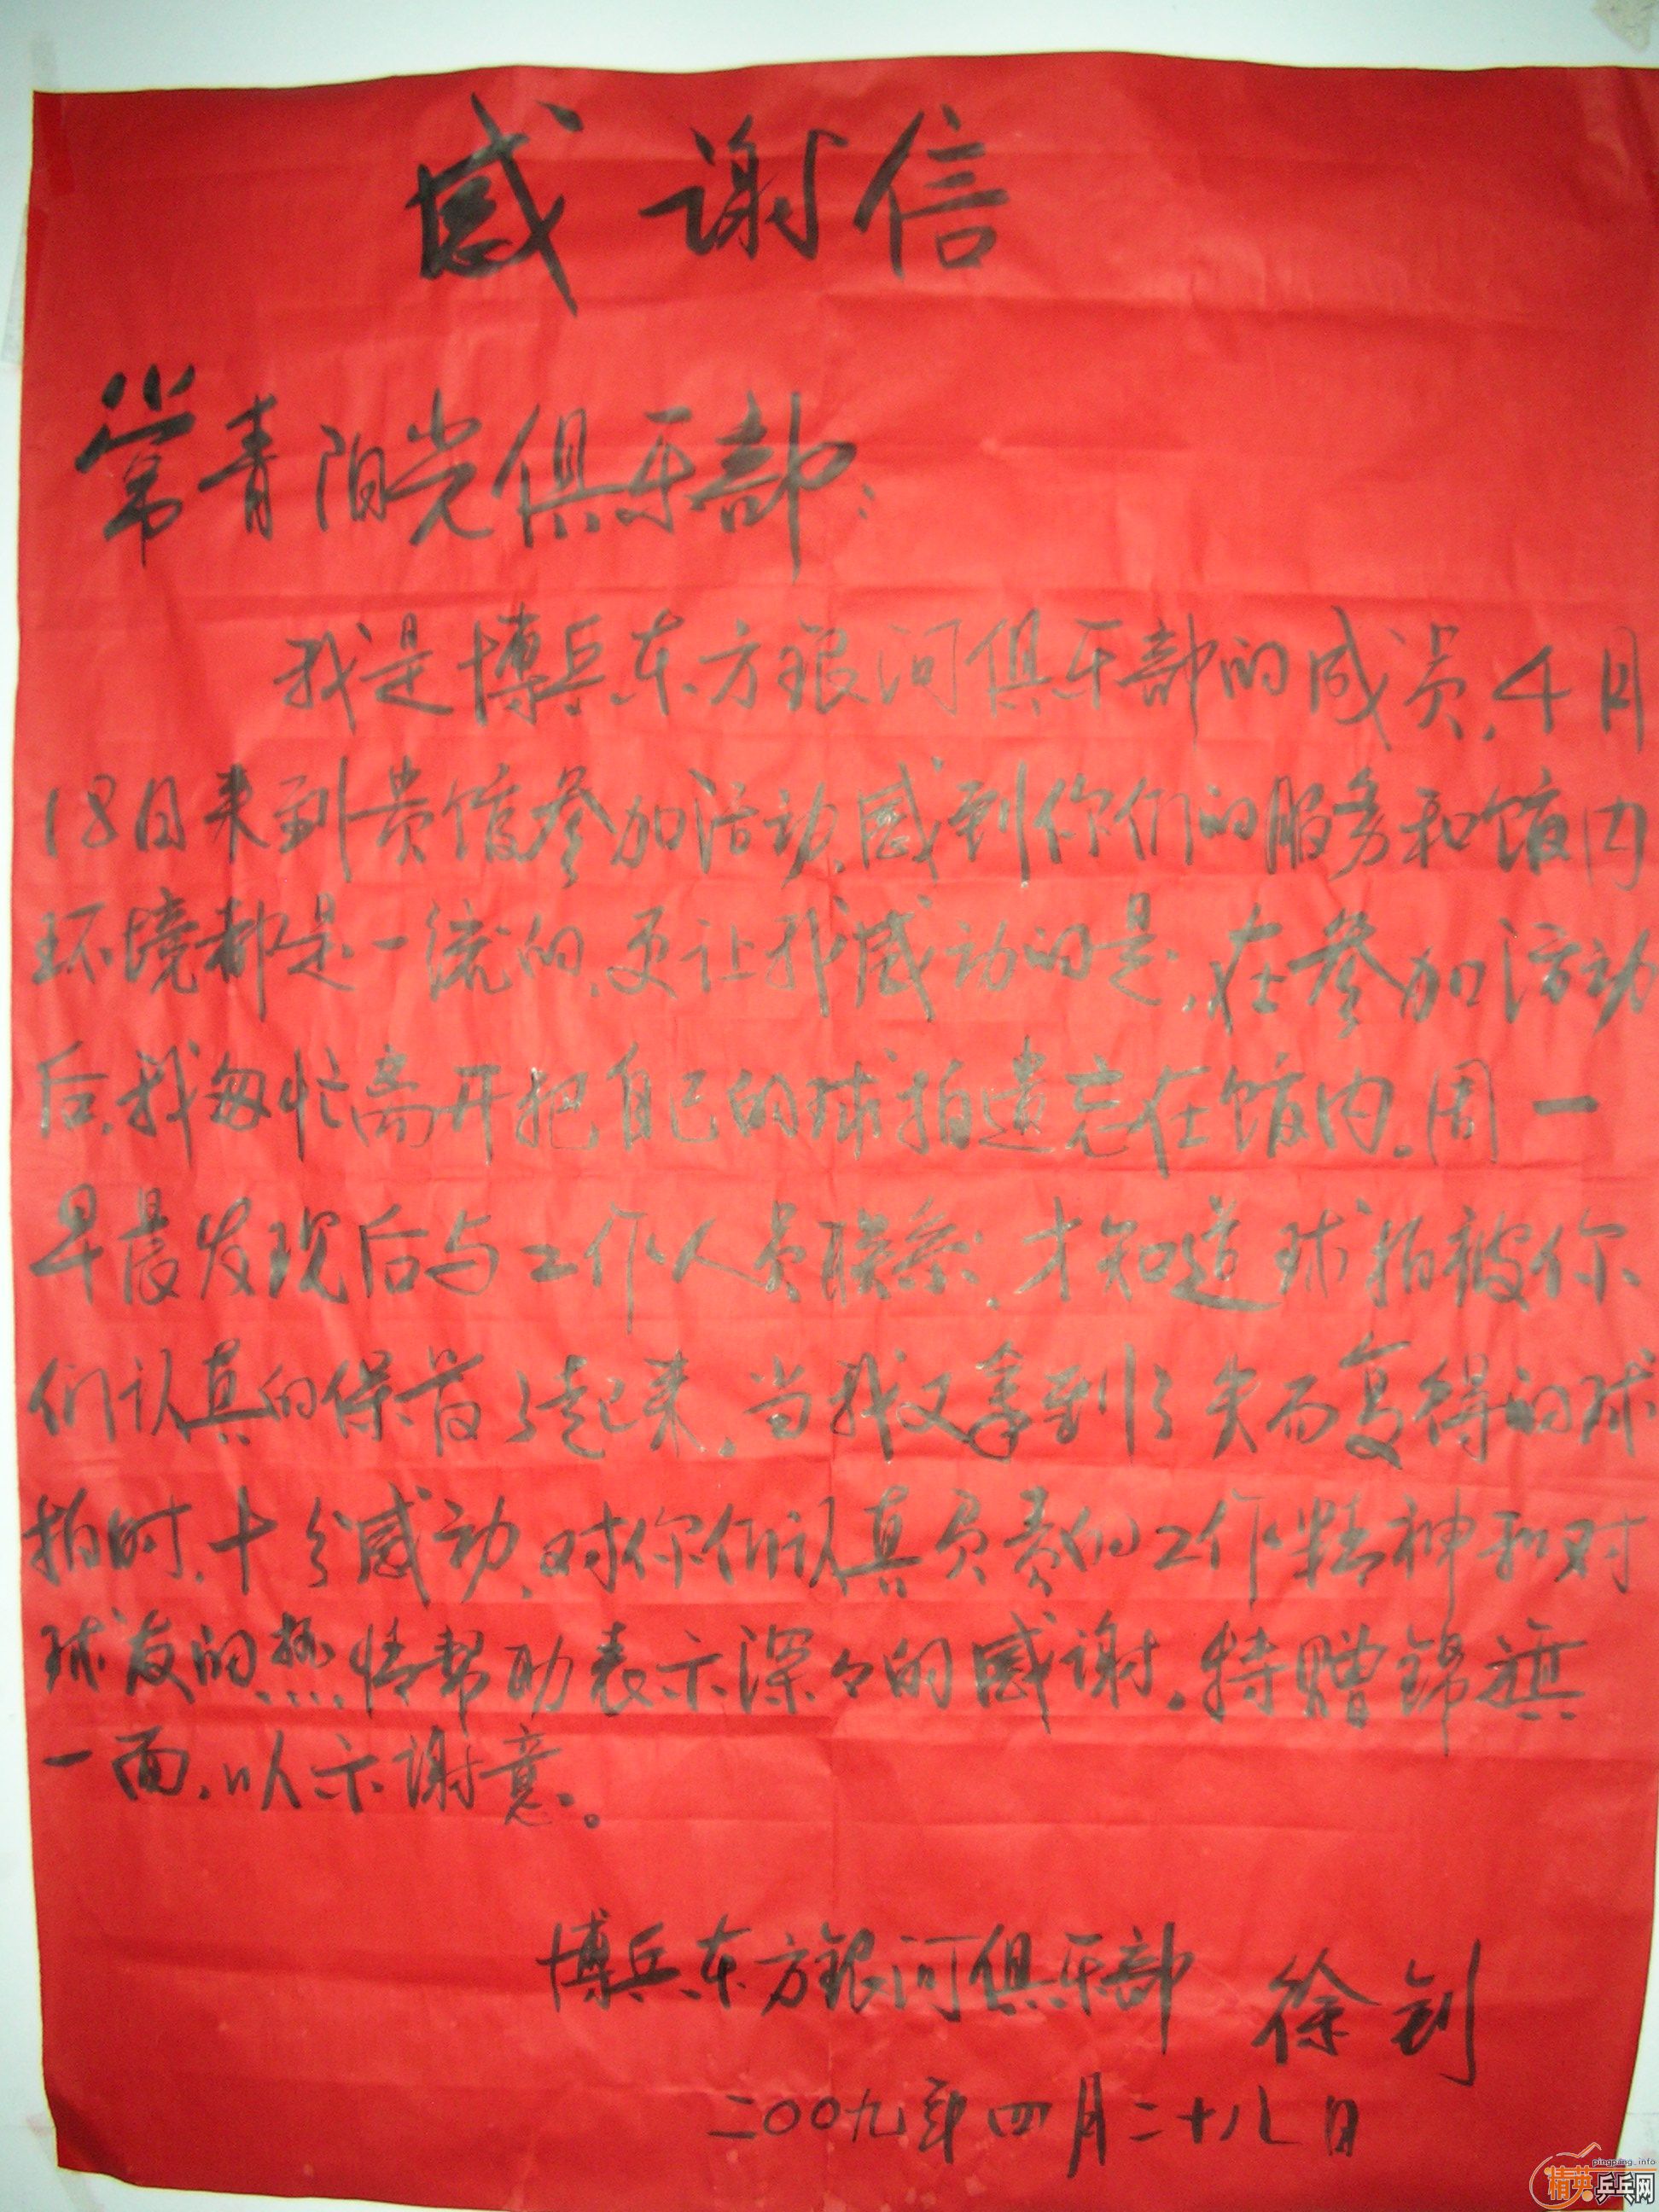 感谢信
常青阳光俱乐部:
我是博兵东方银河俱乐部的成员,4月
18日来到贵馆参加活动,感到你们的服务和馆内
环境都是一流的,更让我感动的是,在参加活动
后,我匆忙离开把自己的球拍遗忘在馆内。周一
早晨发现后与工作人员联系,才知道球拍被你
们认真的保管了起来,当我又拿到了失而复得的球
拍时,十分感动,对你们认真负责的工作精神和对
球友的热情帮助表示深々的感谢。特赠锦旗
一面,以示谢意。
博兵东方银河俱乐部 徐钊
二00九年四月二十八日
pingpang.info
精英乒乓网